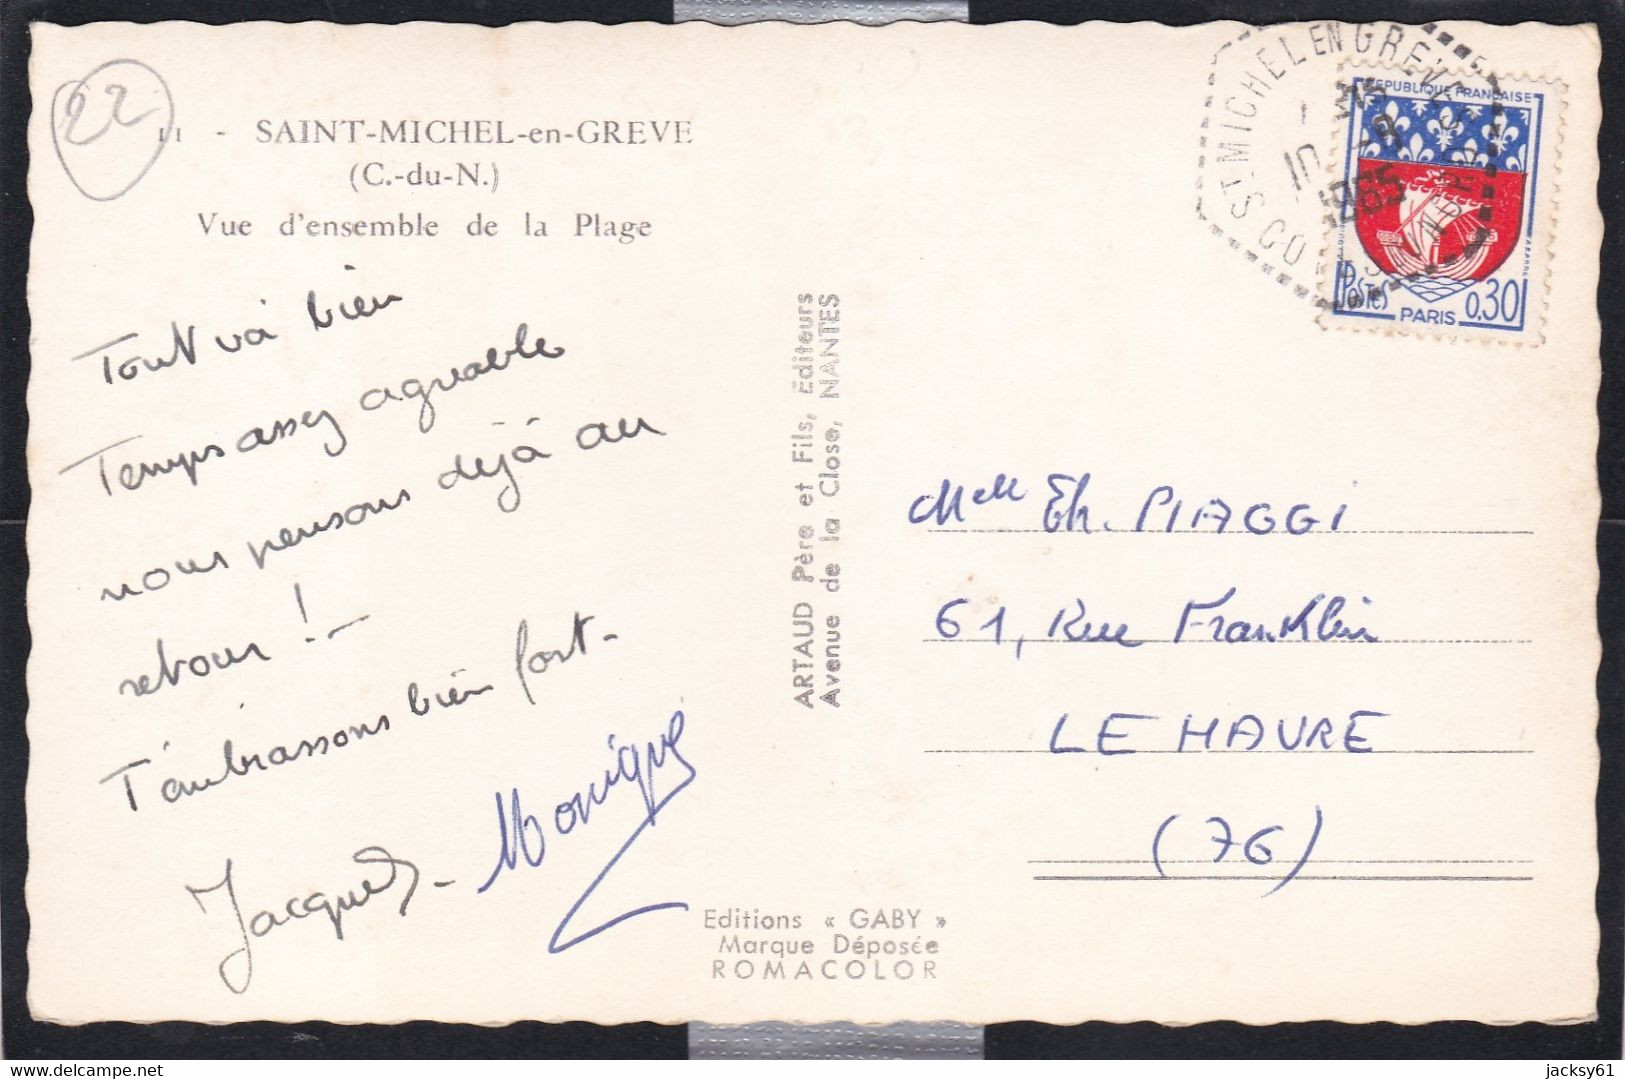 22
11 - SAINT-MICHEL-en-GREVE
(C.-du-N.)
Vue d'ensemble de la Plage
Tout va bien
Temps assez agréable
nous pensons déjà au
retour ! -
T'embrassons bien fort -
Jacques - Monique
ARTAUD Père et Fils, Editeurs
Avenue de la Close, NANTES
Editions « GABY »
Marque Déposée
ROMACOLOR
ST MICHEL EN GREVE
CO
10 - 9
1965
REPUBLIQUE FRANCAISE
POSTES
PARIS
0,30
Melle Th. PIAGGI
61, Rue Franklin
LE HAVRE
(76)
jacksy61